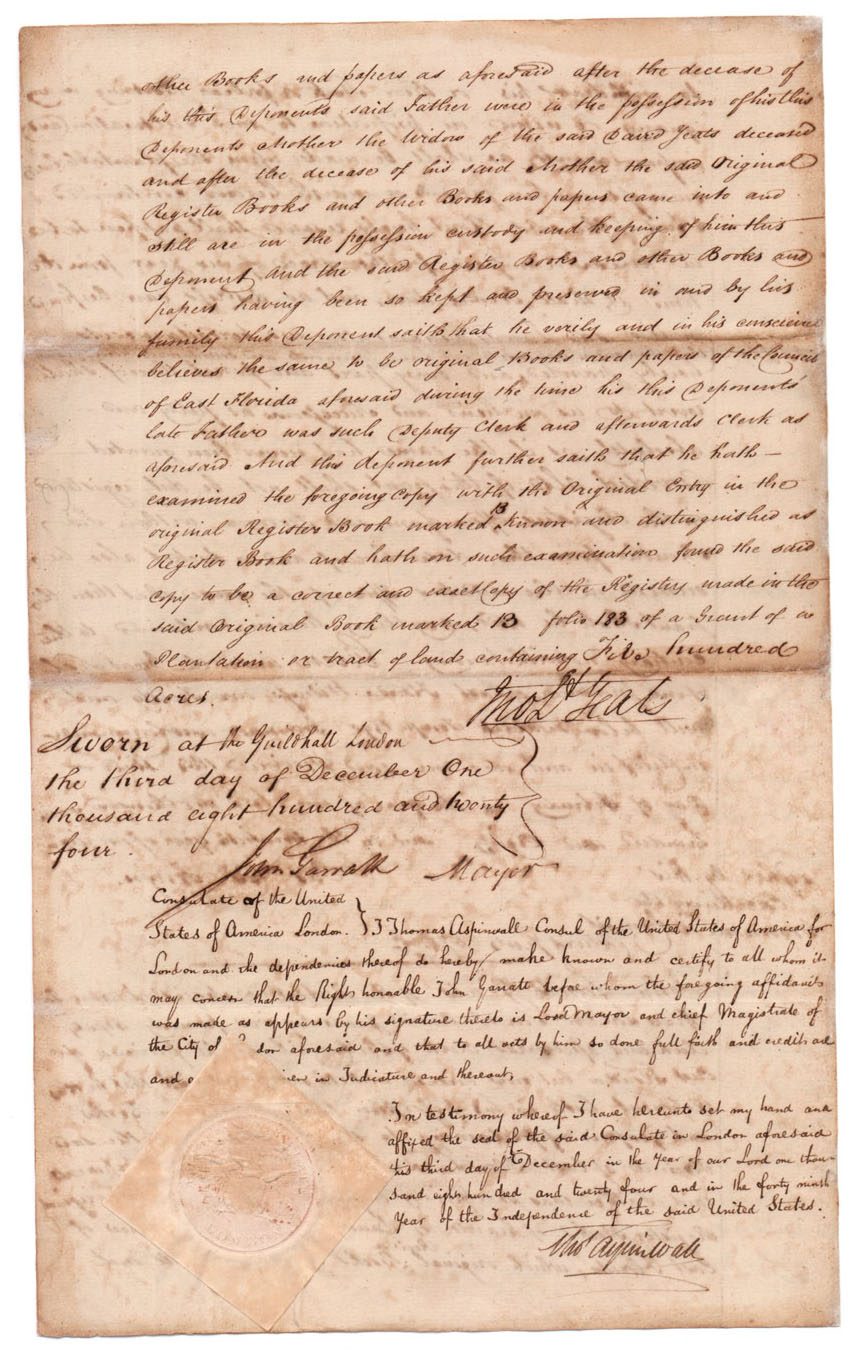 other Books and papers as aforesaid after the decease of
his this Deponents said Father were in the possession of his this
Deponents Mother the Widow of the said David Yeats deceased
and after the decease of his said Mother the said Original
Register Books and other Books and papers came into and
still are in the possession custody and keeping of him this
Deponent And the said Register Books and other Books and
papers having been so kept and preserved in and by his
family this Deponent saith that he verily and in his conscience
believes the same to be original Books and papers of the Council
of East Florida aforesaid during the time his this Deponents
late Father was such Deputy Clerk and afterwards Clerk as
aforesaid And this deponent further saith that he hath —
examined the foregoing Copy with the Original Entry in the
original Register Book marked B known and distinguished as
Register Book and hath on such examination found the said
Copy to be a correct and exact Copy of the Registry made in the
said Original Book marked B folio 183 of a Grant of a
Plantation or tract of land containing Five hundred
Acres.
Yeats
Sworn at the Guildhall London
the third day of December One
thousand eight hundred and twenty
four.
John Garratt Mayor
Consulate of the United
States of America London. } I Thomas Aspinwall Consul of the United States of America for
London and the dependencies thereof do hereby make known and certify to all whom it
may concern that the Right honorable John Garratt before whom the foregoing affidavit
was made as appears by his signature thereto is Lord Mayor and chief Magistrate of
the City of don aforesaid and that to all acts by him so done full faith and credit are
and in Judicature and thereout,
In testimony whereof I have hereunto set my hand and
affixed the seal of the said Consulate in London aforesaid
this third day of December in the Year of our Lord one thou-
sand eight hundred and twenty four and in the forty ninth
Year of the Independence of the said United States.
Tho.s Aspinwall